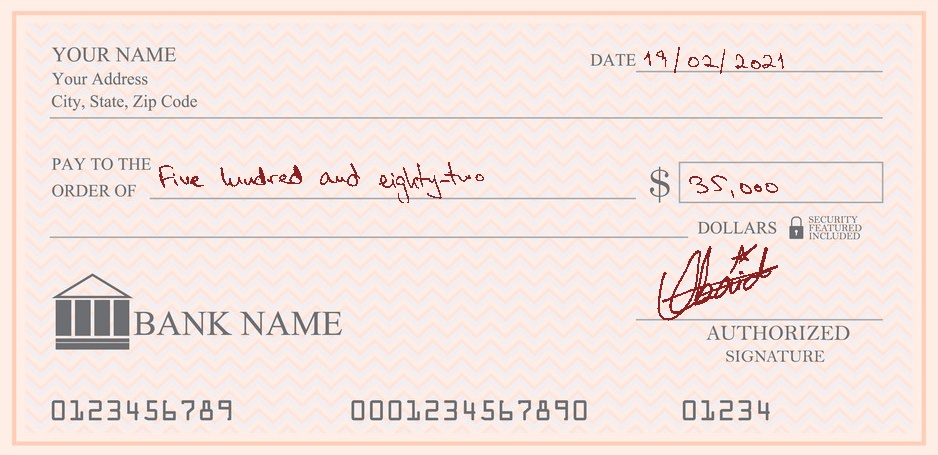 YOUR NAME
Your Address
City, State, Zip Code
DATE 19/02/2021
PAY TO THE
ORDER OF Five hundred and eighty-two
$ 35,000
DOLLARS
SECURITY
FEATURED
INCLUDED
Ubaid
BANK NAME
AUTHORIZED
SIGNATURE
0123456789 0001234567890 01234